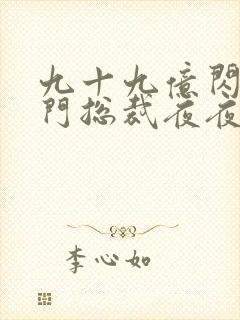 九十九億閃
門总裁夜夜
李心如